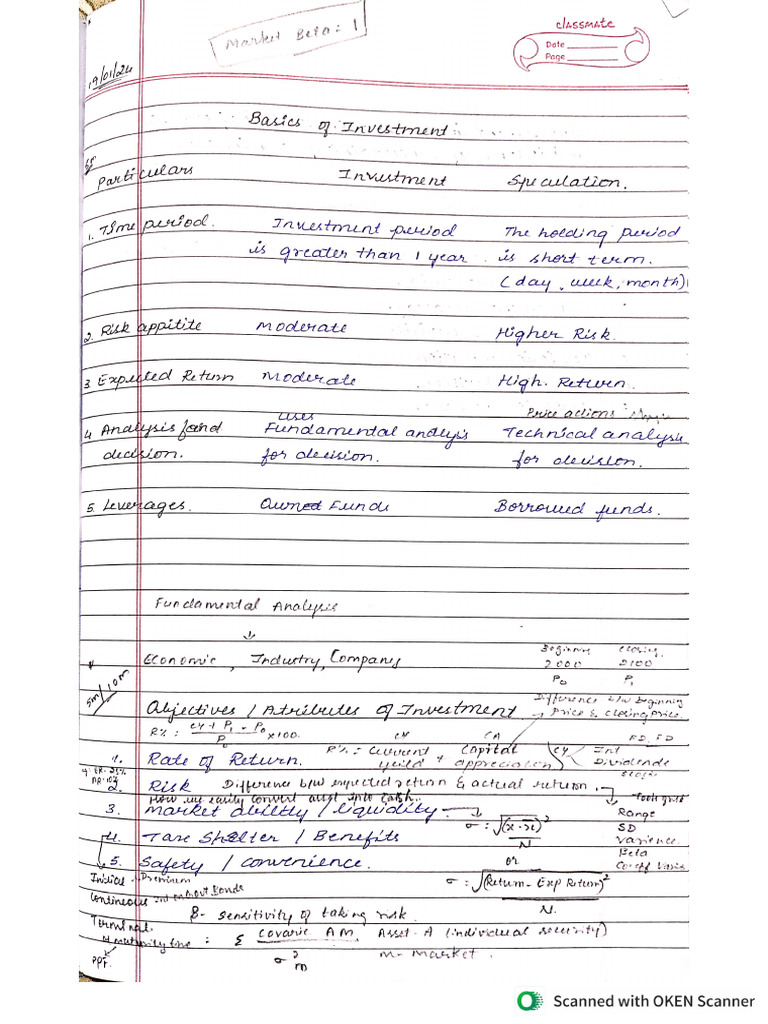 Market Beta = 1
classmate
Date
Page
19/01/24
Basics of Investment
Particulars Investment Speculation.
1. Time period. Investment period The holding period
is greater than 1 year. is short term.
(day, week, month)
2. Risk appitite Moderate Higher Risk.
3. Expected Return Moderate High. Return.
uses Price actions
4 Analysis and Fundamental analysis Technical analysis
decision. for decision. for decision.
5. Leverages. Owned Funds Borrowed funds.
Fundamental Analysis
↓
Economic, Industry, Company
Beginning Closing
2000 2100
P0 P1
5m/10m
Difference b/w beginning
Price & closing Price.
Objectives / Atributes of Investment
R% = CY + P1 - P0 / P0 x100.
CY CA
R% = Current yield + Capital appreciation
CY Int FD, FD
Dividends
1. Rate of Return.
2. Risk Difference b/w expected return & actual return.
How we easily convert asst into cash.
3. Market ability / liquidity
Range
SD
Varience
Beta
σ = √(x-x̄)² / N
4. Taxe Shelter / Benefits
or
5. Safety / convenience.
σ = √(Return - Exp Return)² / N.
Initial - Premium
Continuous
β - sensitivity of taking risk.
Terminal.
Maturity time : Σ Covarie AM Asset-A (individual security)
σ² m m - market.
PPF.
Scanned with OKEN Scanner